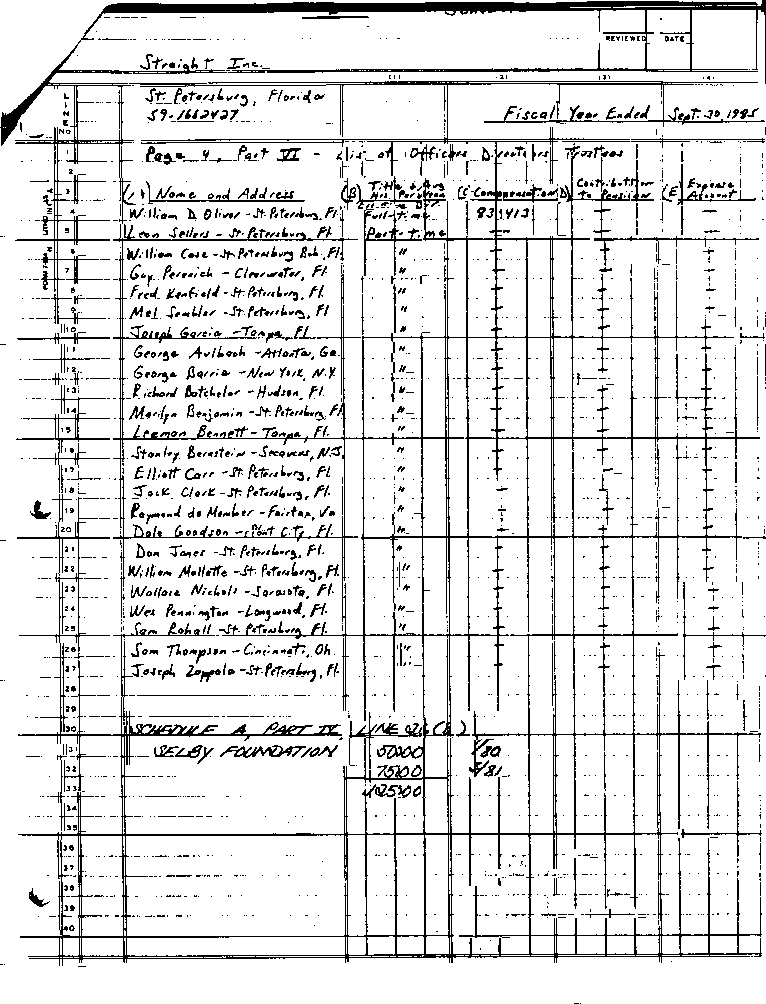 REVIEWED DATE
Straight, Inc.
(1) (2) (3) (4)
St. Petersburg, Florida
59-1662427
Fiscal Year Ended Sept. 30, 1985
LINE NO.
1 Page 4, Part VI - List of Officers Directors Trustees
2
3 (A) Name and Address (B) Title & Avg Hrs. Per Week (C) Compensation (D) Contribution to Pension (E) Expense Account
4 William D. Oliver - St. Petersburg, Fl. Full-time
5 Leon Sellers - St. Petersburg, Fl. Part-time — — —
6 William Case - St. Petersburg Bch., Fl. " — — —
7 Guy Perenich - Clearwater, Fl. " — — —
8 Fred Kenfield - St. Petersburg, Fl. " — — —
9 Mel Sembler - St. Petersburg, Fl. " — — —
10 Joseph Garcia - Tampa, Fl. " — — —
11 George Aulbach - Atlanta, Ga. " — — —
12 George Barria - New York, N.Y. " — — —
13 Richard Batchelor - Hudson, Fl. " — — —
14 Marilyn Benjamin - St. Petersburg, Fl. " — — —
15 Leeman Bennett - Tampa, Fl. " — — —
16 Stanley Bernstein - Secaucus, N.J. " — — —
17 Elliott Carr - St. Petersburg, Fl. " — — —
18 Jack Clark - St. Petersburg, Fl. " — — —
19 Raymond de Member - Fairfax, Va " — — —
20 Dale Goodson - Plant City, Fl. " — — —
21 Don Jones - St. Petersburg, Fl. " — — —
22 William Mallette - St. Petersburg, Fl. " — — —
23 Wallace Nichols - Sarasota, Fl. " — — —
24 Wes Pennington - Longwood, Fl. " — — —
25 Sam Rahall - St. Petersburg, Fl. " — — —
26 Sam Thompson - Cincinnati, Oh. " — — —
27 Joseph Zappala - St. Petersburg, Fl. " — — —
28
29
30 SCHEDULE A, PART IV, LINE 26(B)
31 SELBY FOUNDATION 50000 /80
32 75000 /81
33 125000
34
35
36
37
38
39
40